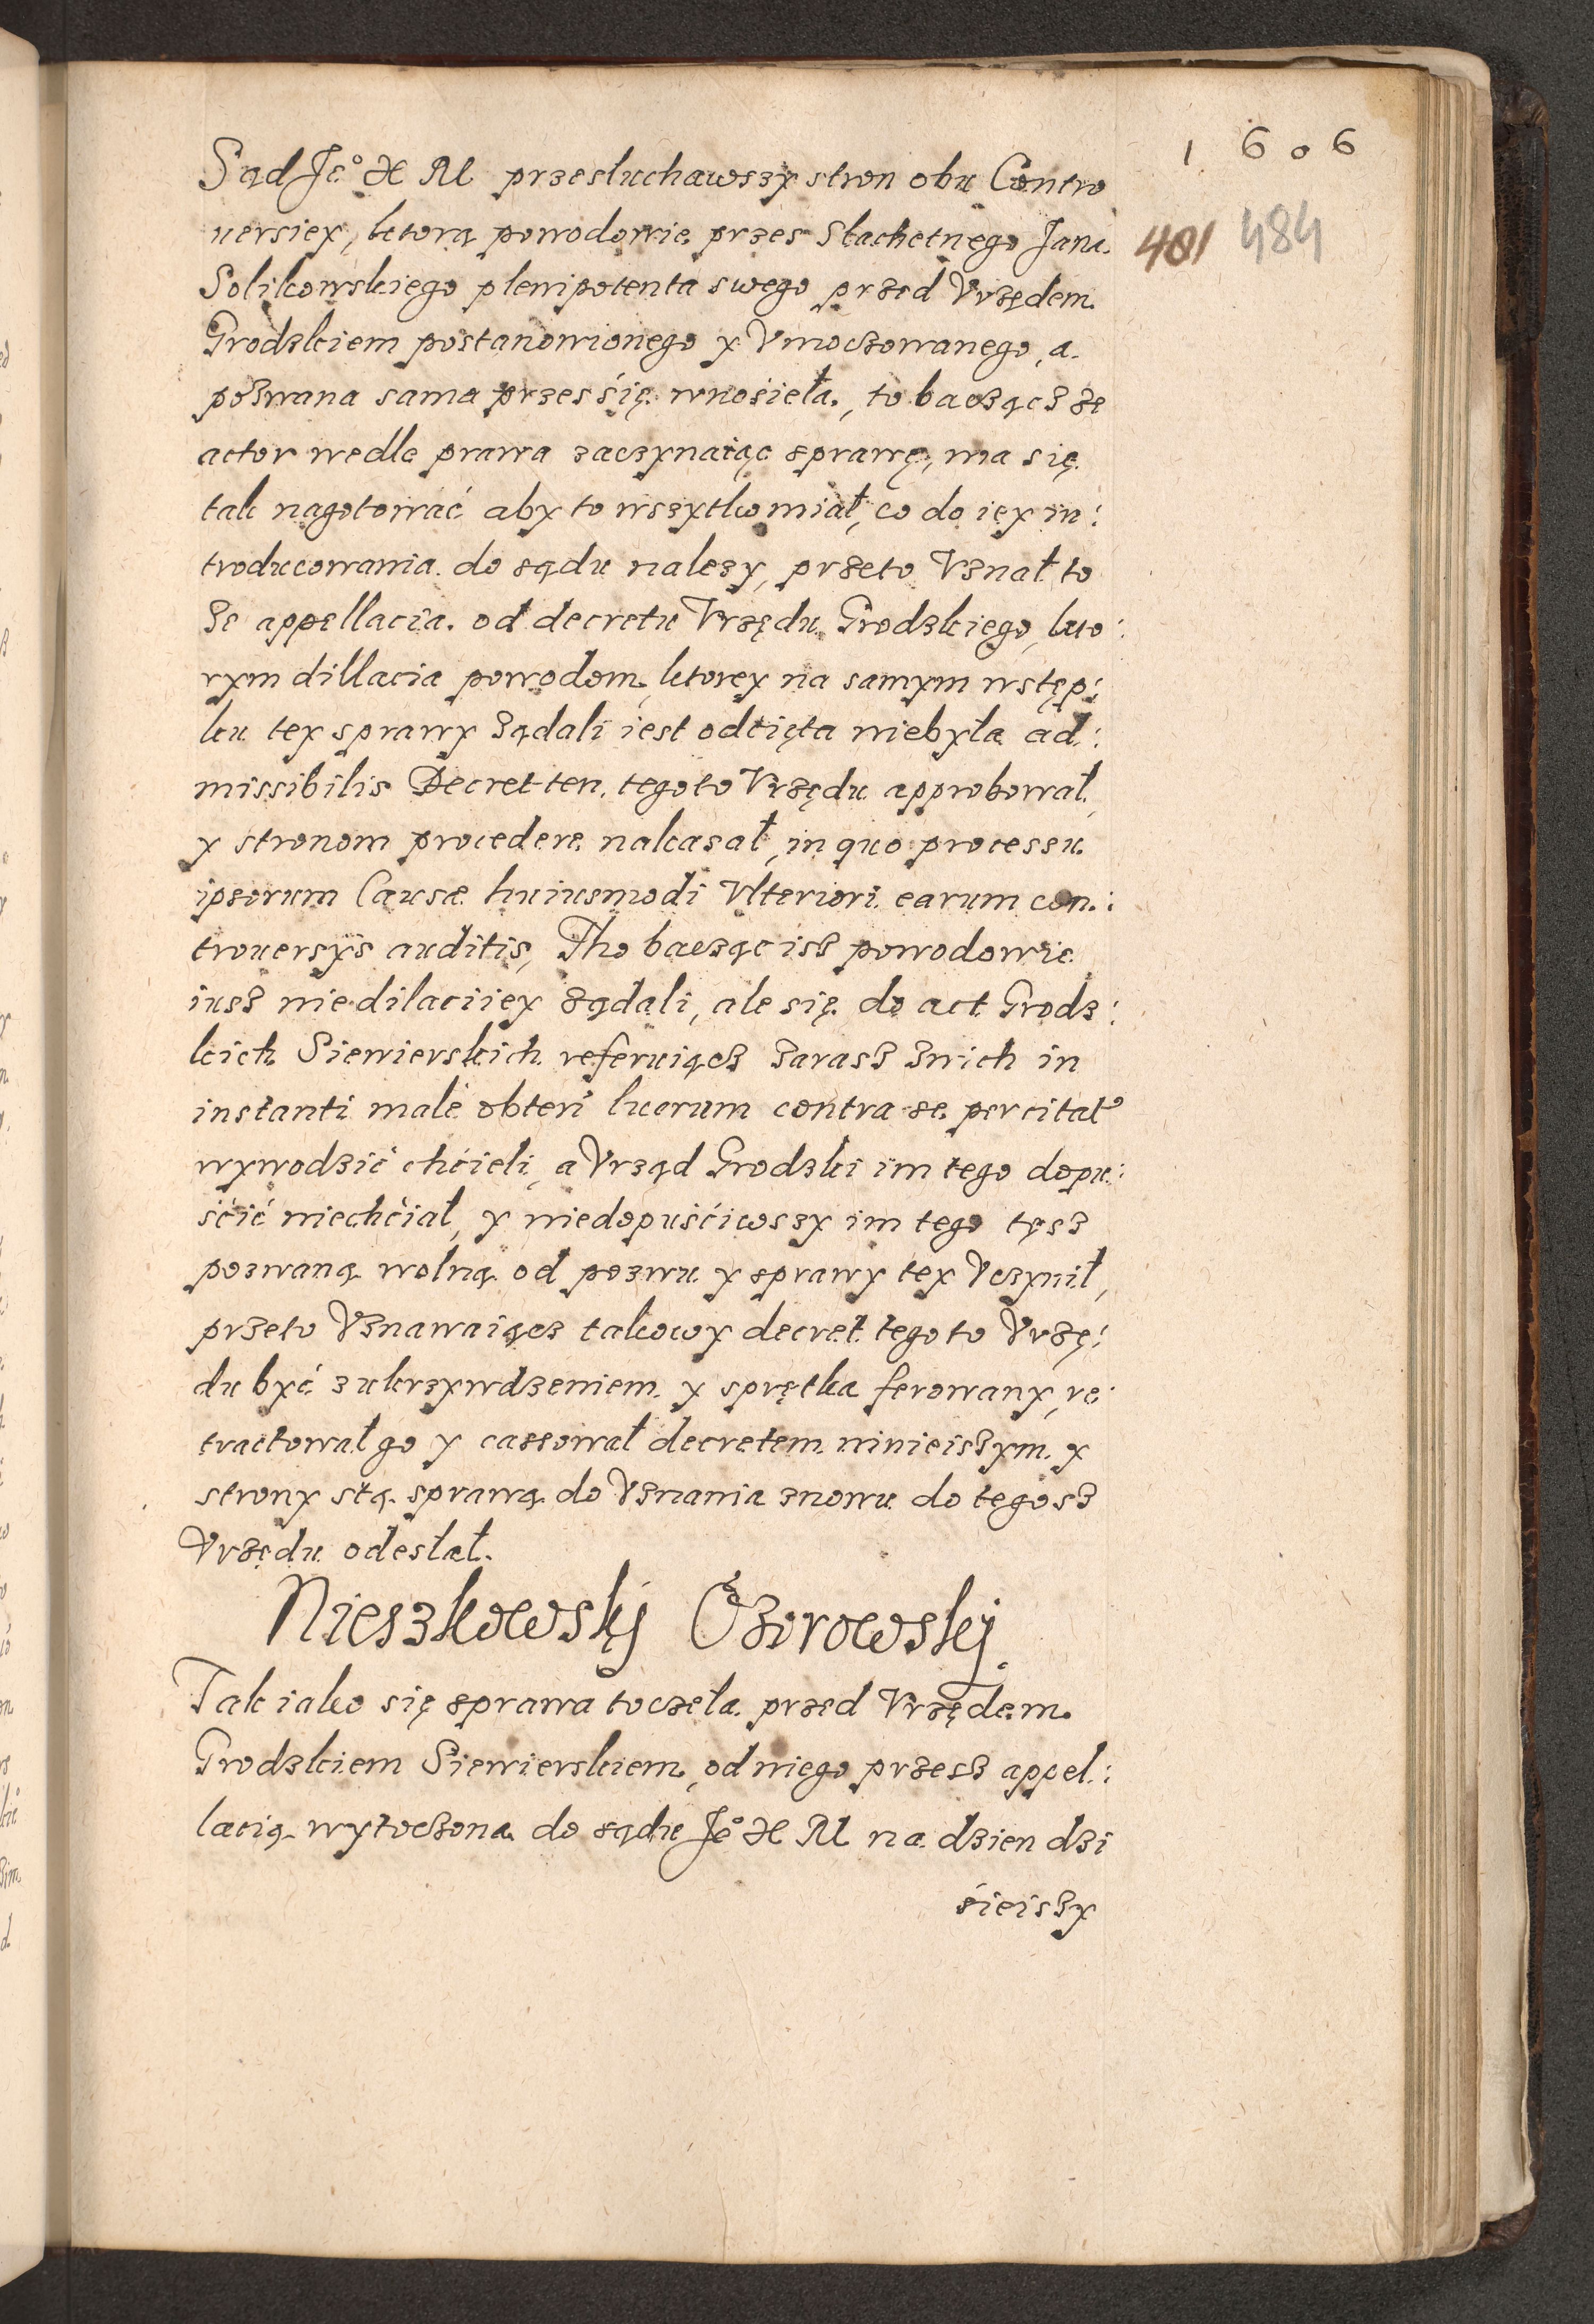 1 6 0 6
401 484
Sąd Je° X M przesłuchawszy stron obu Contro
uersiey, ktorą powodowie przes Słachetnego Jana
Solikowskiego plenipotenta swego przed Vrzędem
Grodzkiem postanowionego y Vmoczowanego, a
pozwana sama przes się wnosieła, to baczącz że
actor wedle prawa zaczynaiąc sprawę, ma się
tak nagotować aby to wszytko miał, co do iey in:
troducowania do sądu nalezy, przeto Vznał to
że appellacia od decretu Vrzędu Grodzkiego, kto:
rym dillacia powodom, ktorey na samym wstęp:
ku tey sprawy żądali iest odcięta niebyła ad:
missibilis Decret ten tegoto Vrzędu approbował,
y stronom procedere nakasał, in quo processu
ipsorum Causæ huiusmodi Vlteriori earum con:
trouersijs auditis, Tho bacząc isz powodowie
iusz nie dilaciiey żądali, ale się do act Grodz:
kich Siewierskich referuiącz zarasz znich in
instanti malè obten̄ lucrum contra se per citat°
wywodzić chćieli, a Vrząd Grodzki im tego dopu:
śćić niechćiał, y niedopuśćiwszy im tego tęsz
pozwaną wolną od pozwu y sprawy tey Vczynił,
przeto Vznawaiącz takowy decret tegoto Vrzę:
du być z ukrzywdzeniem y sprętka ferowany, re:
tractował go y cassował decretem ninieiszym y
strony stą sprawą do Vznania znowu do tegosz
Vrzędu odesłał.
Nieszkowskj Ożorowskj
Tak iako się sprawa toczeła przed Vrzędem
Grodzkiem Siewierskiem, od niego przesz appel:
lacią wytoczona do sądu Je° X M na dzien dzi
śieiszy